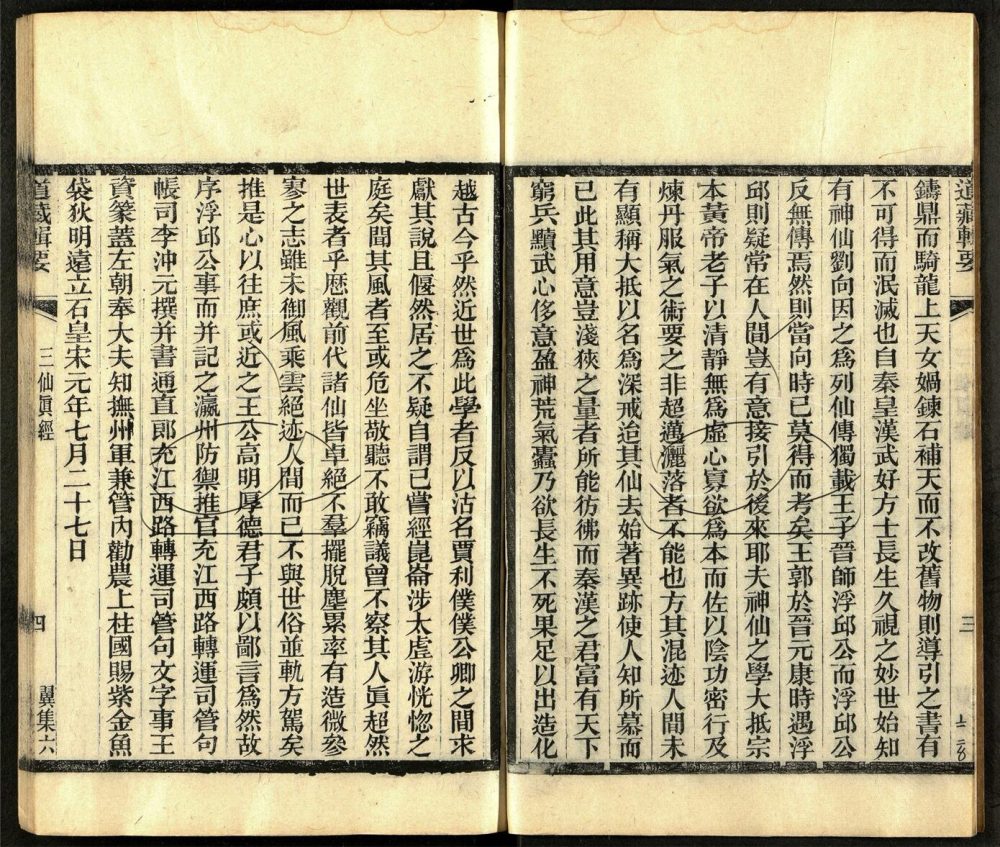 道藏輯要
三
鑄鼎而騎龍上天女媧鍊石補天而不改舊物則導引之書有
不可得而泯滅也自秦皇漢武好方士長生久視之妙世始知
有神仙劉向因之爲列仙傳獨載王子晉師浮邱公而浮邱公
反無傳焉然則當向時已莫得而考矣王郭於晉元康時遇浮
邱則疑常在人間豈有意接引於後來耶夫神仙之學大抵宗
本黃帝老子以清靜無爲虛心寡欲爲本而佐以陰功密行及
煉丹服氣之術要之非超邁灑落者不能也方其混迹人間未
有顯稱大抵以名爲深戒迨其仙去始著異跡使人知所慕而
已此其用意豈淺狹之量者所能彷彿而秦漢之君富有天下
窮兵黷武心侈意盈神荒氣蠹乃欲長生不死果足以出造化
越古今乎然近世爲此學者反以沽名賈利僕僕公卿之間求
獻其說且偃然居之不疑自謂已嘗經崑崙涉太虛游恍惚之
庭矣聞其風者至或危坐敬聽不敢竊議曾不察其人眞超然
世表者乎歷觀前代諸仙皆卓絕不羣擺脫塵累率有造微參
寥之志雖未御風乘雲絕迹人間而已不與世俗並軌方駕矣
推是心以往庶或近之王公高明厚德君子頗以鄙言爲然故
序浮邱公事而并記之瀛州防禦推官充江西路轉運司管句
帳司李沖元撰并書通直郎充江西路轉運司管句文字事王
資䇿蓋左朝奉大夫知撫州軍兼管內勸農上柱國賜紫金魚
袋狄明遠立石皇宋元年七月二十七日
道藏輯要
三仙眞經
四
翼集六